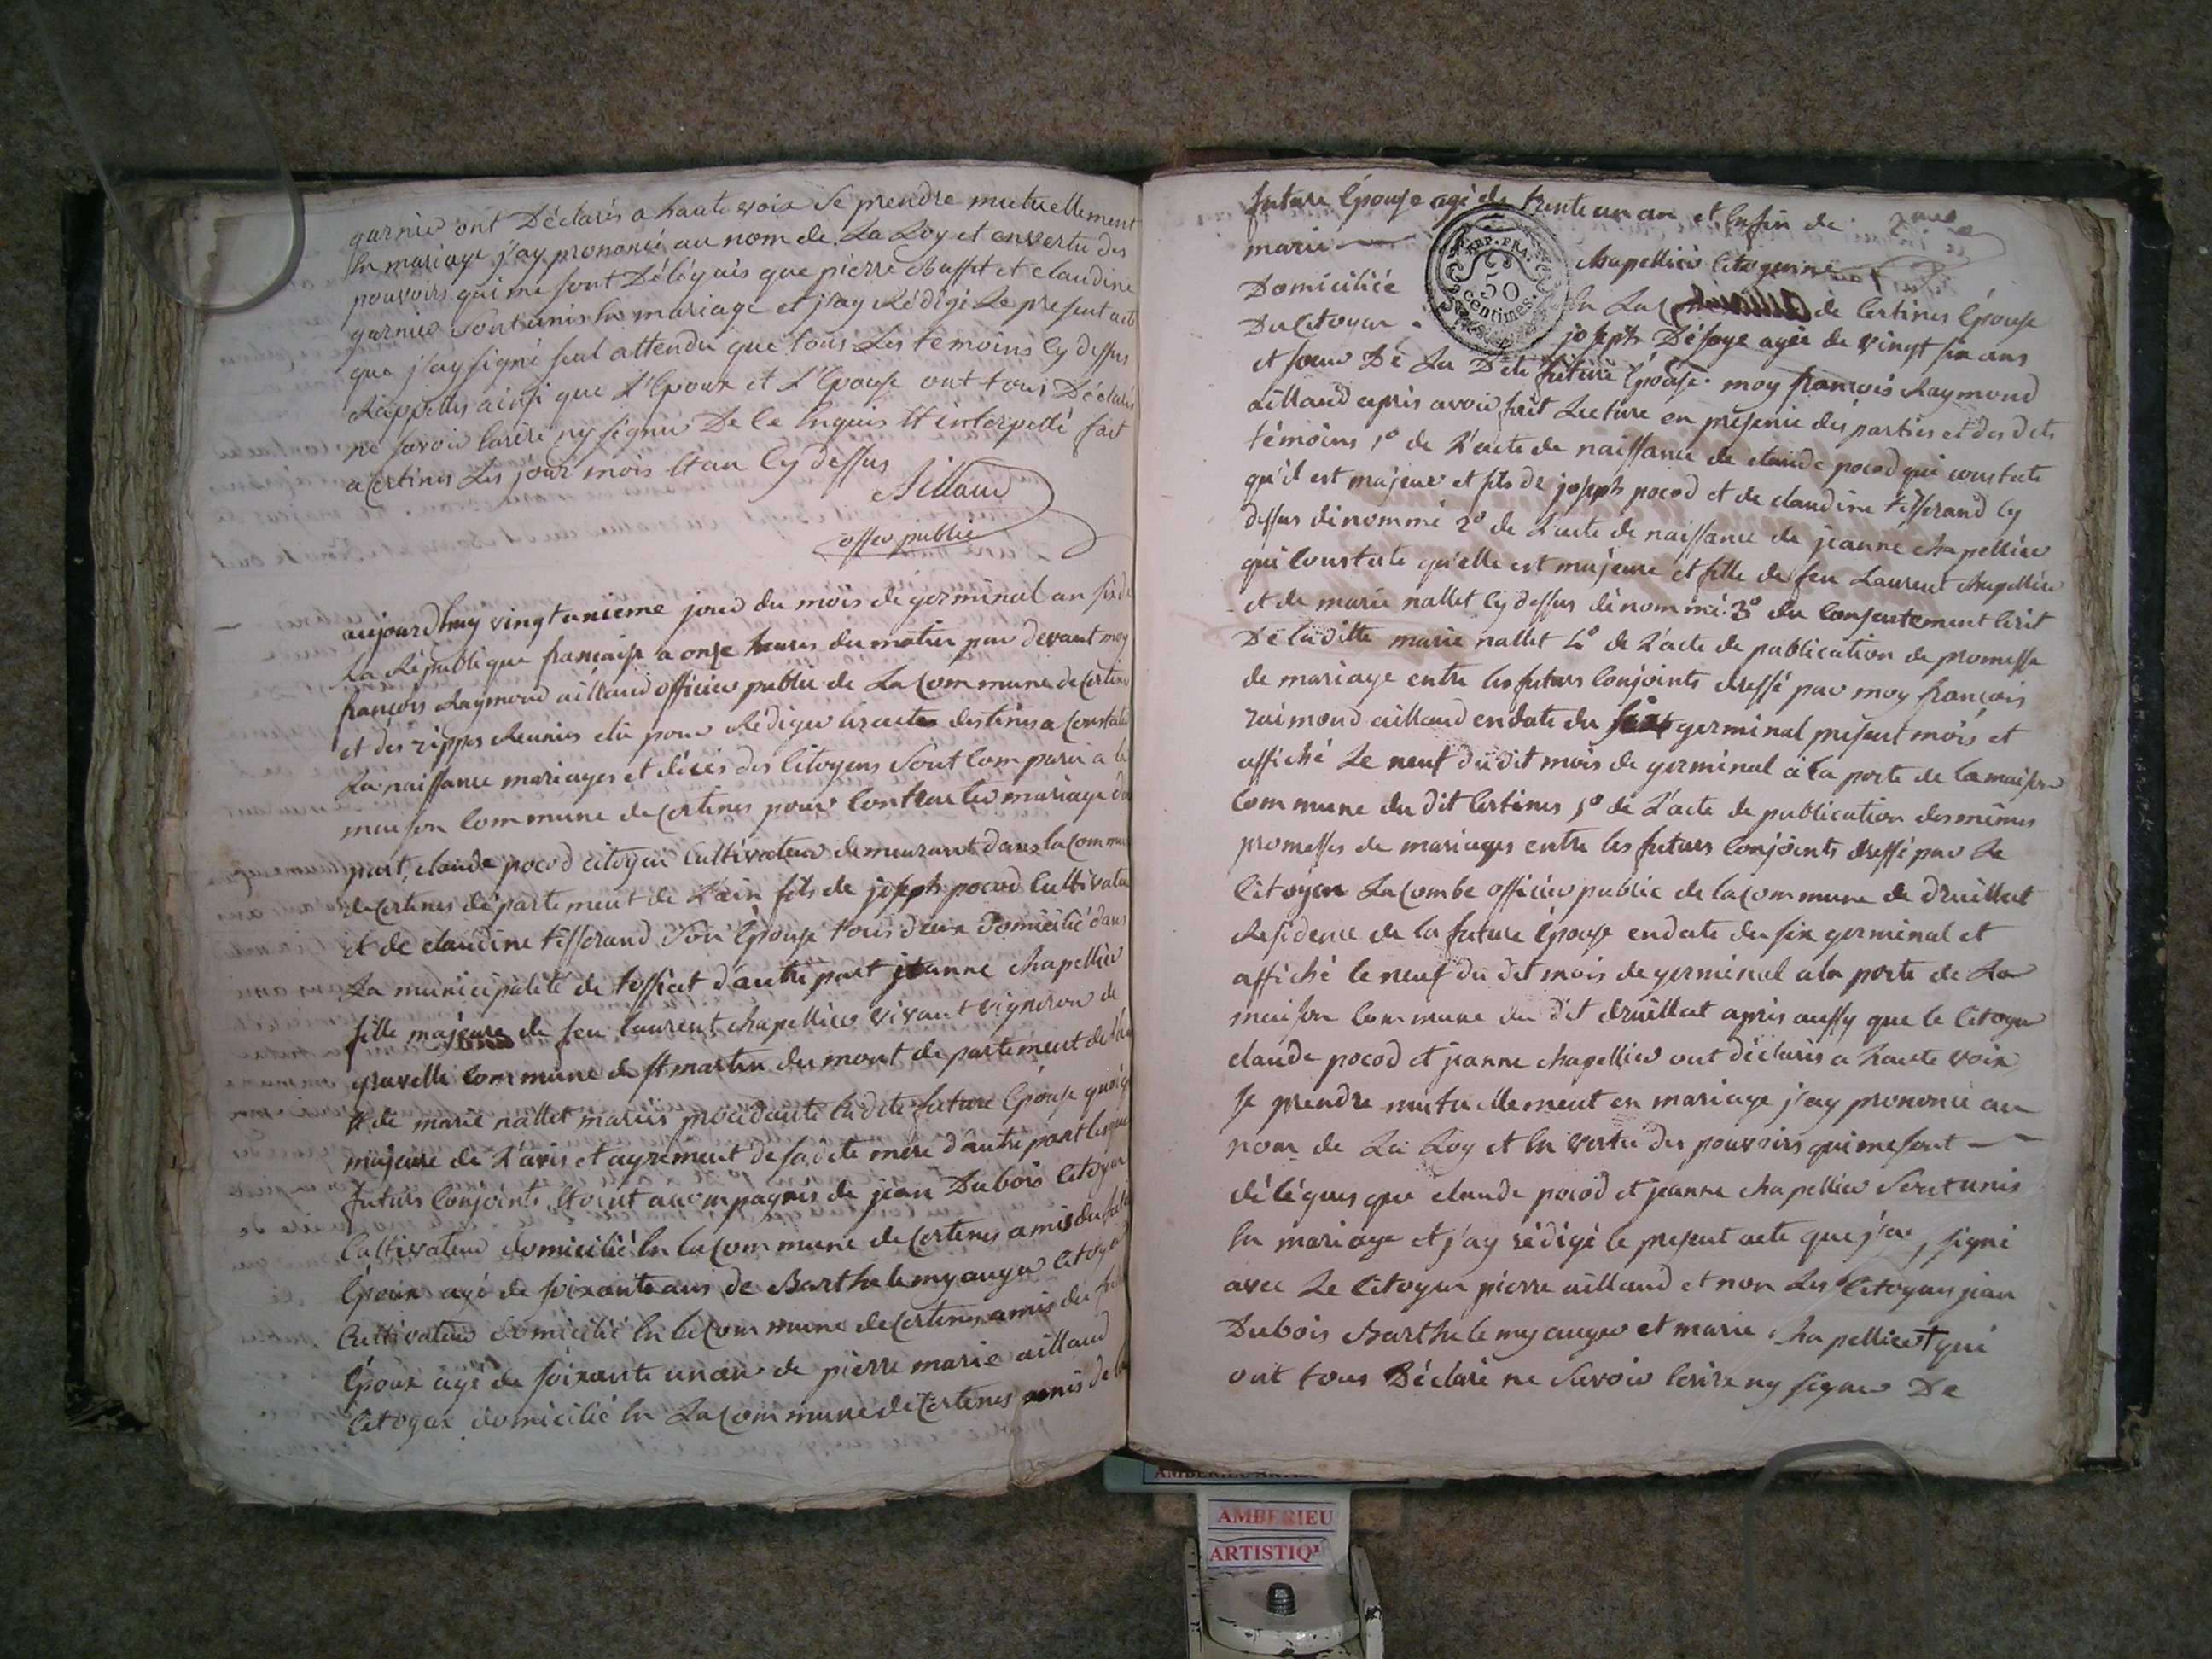 garnier ont Déclarés a haute voix Se prendre mutuellement
En mariage j'ay prononcé au nom de La Loy et envertu des
pouvoirs qui me sont Délégués que pierre et claudine
garnier Sont unis En mariage et j'ay Rédigé Le present acte
que j'ay signé seul attendu que tous Les temoins Cy dessus
Rappellés ainsi que L'Epoux et L'Epouse ont tous Déclarés
ne savoir Ecrire ny signer De ce Enquis Et interpellé fait
a Certines Les jour mois Et an Cy dessus
Aillaud
offer public
aujourdhuy vingt unieme jour du mois de germinal an six de
La République francaise a onze heures du matin par devant moy
françois Raymond aillaud officier public de La Commune de Certines
et des rippes Reunies élu pour Rédiger les actes destinés a Constater
La naissance mariages et décés des Citoyens Sont Comparu a la
maison Commune de Certines pour Contracter mariage d'une
part, claude pocod citoyen Cultivateur demeurant dans la Commune
de Certines département de L'ain fils de joseph pocod Cultivateur
et de claudine tisserand Son Epouse tous deux Domicilié dans
La municipalité de tossiat d'autre part jeanne chapellier
fille majeure de feu laurent chapellier vivant vigneron de
gravelle Commune de st martin du mont département de l'ain
Et de marie nallet mariés procédante ladite future Epouse quoiq
majeure de L'avis et agrement de sa dite mère d'autre part lesquels
futurs Conjoints Etoint accompagnés de jean Dubois Citoyen
Cultivateur domicilié En la Commune de Certines amis du futur
Epoux agé de soixante ans de Barthelemy auger Citoyen
Cultivateur domicilié En la Commune de Certines amis du futur
Epoux agé de soixante un an de pierre marie aillaud
Citoyen domicilié En La Commune de Certines amis de la
future Epouse agé de trente un an et Enfin de
marie
chapellier Citoyenne
Domiciliée
En La de Certines Epouse
Du Citoyen
joseph Désaye agée de vingt six ans
et soeur De La Dite future Epouse. moy françois Raymond
aillaud apris avoir fait Lecture en présence des parties et des dets
témoins 1º de L'acte de naissance de claude pocod qui constate
qu'il est majeur et fils de joseph pocod et de claudine tisserand Cy
dessus dénommé 2º de L'acte de naissance de jeanne chapellier
qui Constate qu'elle est majeure et fille de feu Laurent chapellier
et de marie nallet Cy dessus dénommé. 3º du Consentement Ecrit
De laditte marie nallet 4º de L'acte de publication de promesse
de mariage entre les futurs Conjoints dressé par moy françois
raimond aillaud endate du six germinal present mois et
affiché Le neuf dudit mois de germinal à la porte de la maison
Commune du dit Certines 5º de L'acte de publication des mêmes
promesses de mariages entre les futurs Conjoints dressé par Le
Citoyen LaCombe officier public de la Commune de druillat
Residence de la future Epouse endate du six germinal et
affiché le neuf du dit mois de germinal a la porte de La
maison Commune du dit druillat apris aussy que le Citoyen
claude pocod et jeanne chapellier ont déclarés a haute voix
Se prendre mutuellement en mariage j'ay prononcé au
nom de La Loy et En vertu des pouvoirs qui me sont
délégués que claude pocod et jeanne chapellier Sont unis
En mariage et j'ay rédigé le present acte que j'ai signé
avec Le Citoyen pierre aillaud et non Les Citoyens jean
Dubois Barthelemy auger et marie chapellier qui
ont tous Déclaré ne Savoir Ecrire ny signer De
REP. FRA.
50
centimes.
AMBERIEU
ARTISTIQ